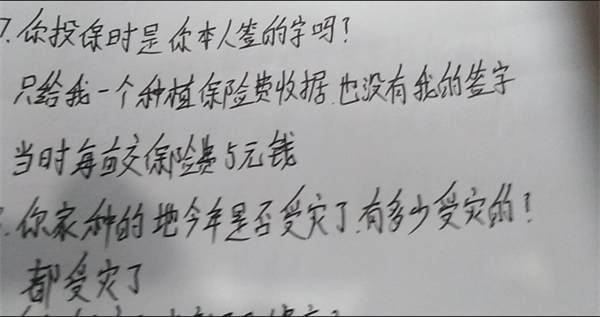 7.你投保时是你本人签的字吗？
只给我一个种植保险费收据.也没有我的签字
当时每亩交保险费5元钱
.你家种的地今年是否受灾了.有多少受灾的！
都受灾了